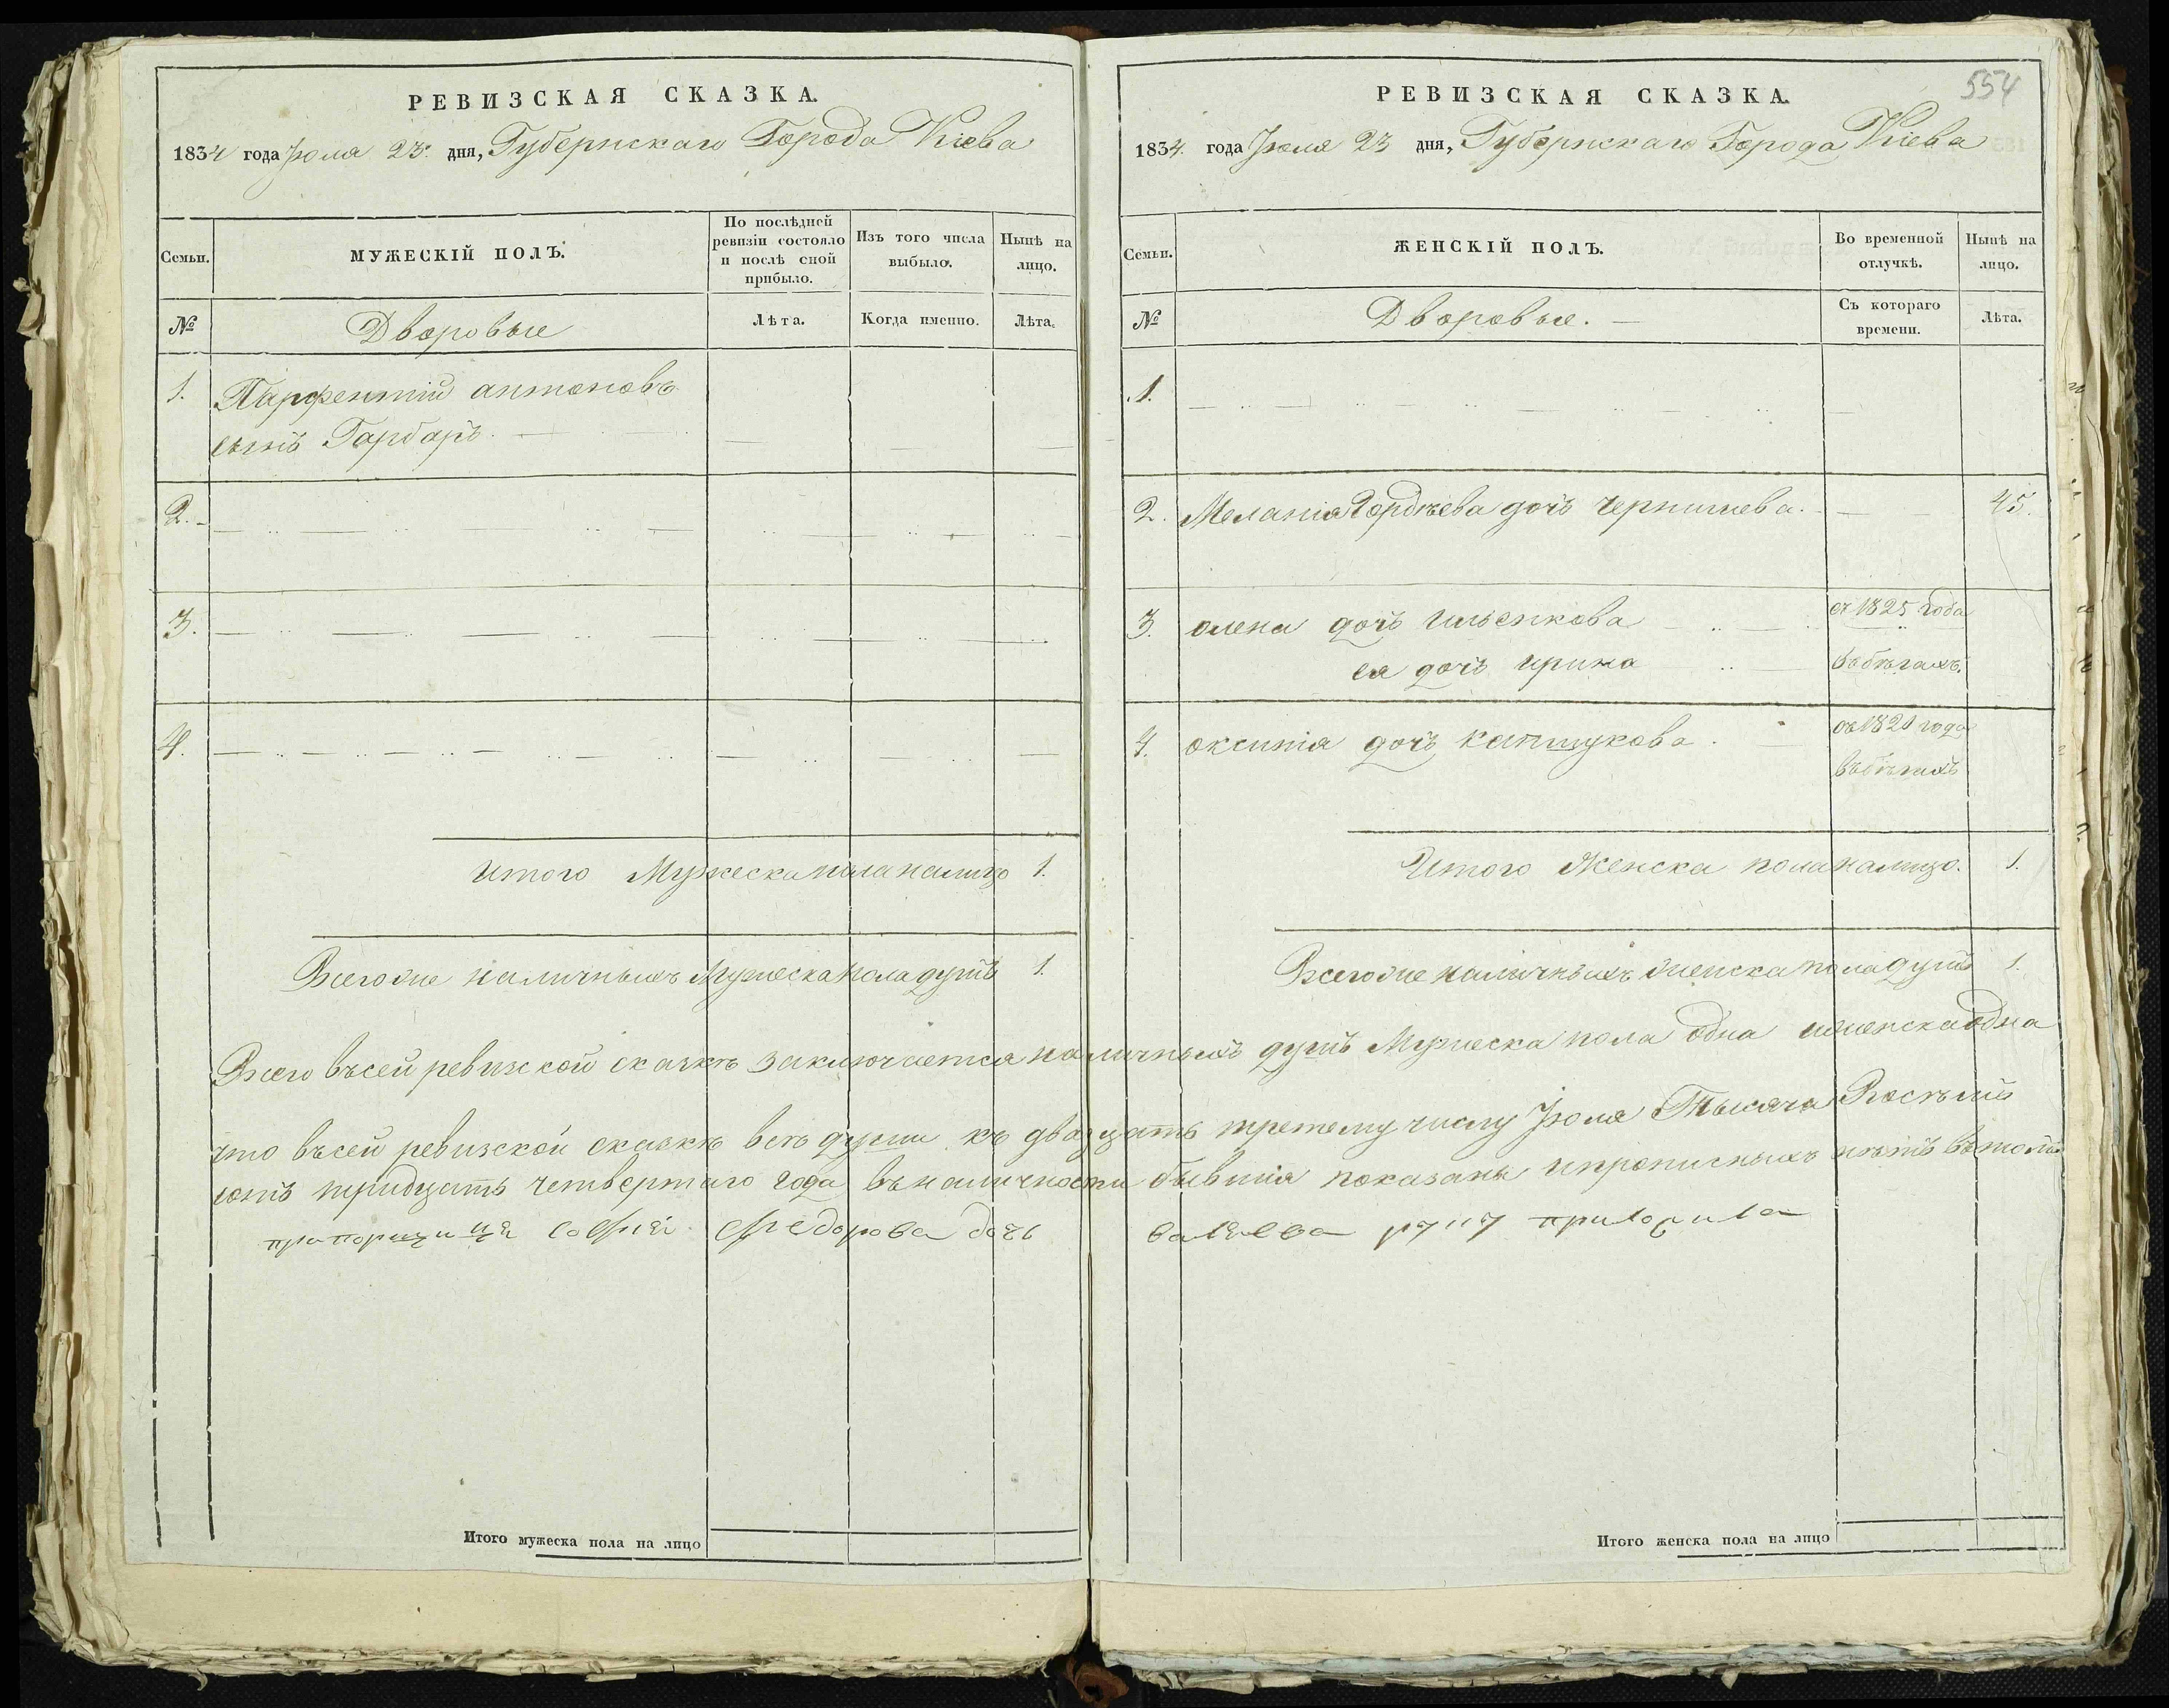 РЕВИЗСКАЯ СКАЗКА.
1834 года Іюля 23. дня, Губернскаго Города Кіева
Семьи.
МУЖЕСКІЙ ПОЛЪ.
По послѣдней
ревизіи состояло
и послѣ оной
прибыло.
Изъ того числа
выбыло.
Нынѣ на
лицо.
№
Дворовые
Лѣта.
Когда именно.
Лѣта.
1. Парфентій антоновъ
сынъ Гарбаръ.
2.
3.
4.
итого Мужеска пола налицо 1.
Всего же наличныхъ Мужеска пола душъ 1.
Итого мужеска пола на лицо
554
РЕВИЗСКАЯ СКАЗКА.
1834. года Іюля 23 дня, Губернскаго Города Кіева
Семьи.
ЖЕНСКІЙ ПОЛЪ.
Во временной
отлучкѣ.
Нынѣ на
лицо.
№
Дворовые.
Съ котораго
времени.
Лѣта.
1.
2. Меланія Гордѣева дочь чернишева. 45.
3. олена дочь ильенкова съ 1825 года
ея дочь ирина въ бѣгахъ.
4. оксинія дочь капшукова. въ бѣгахъ
Итого Женска пола налицо. 1.
Всего же наличныхъ женска пола душъ 1.
Всего въ сей ревизской сказкѣ заключается наличныхъ душъ Мужеска пола одна и женска одна
что въ сей ревизской сказкѣ всѣ души къ двадцать третему числу Іюля Тысяча Восемъ
сотъ тридцать четвертаго года въ наличности бывшія показаны и прописныхъ нѣтъ въ томъ
прапорщица Софія Федорова дочь руку приложила
Итого женска пола на лицо